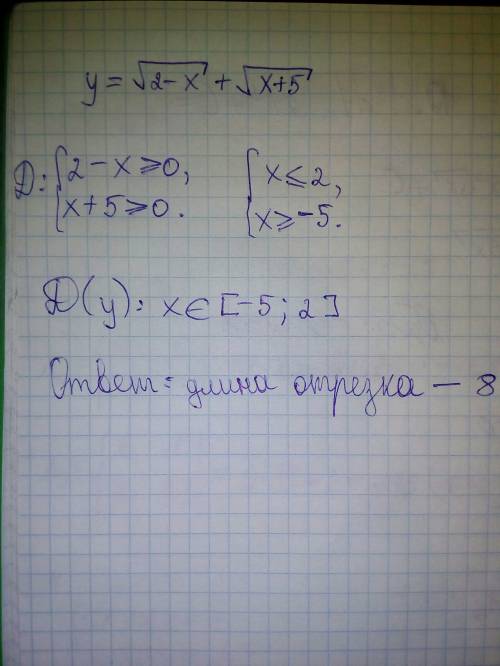 y = √2-x + √x+5
D: { 2 - x ⩾ 0, { x ⩽ 2,
{ x + 5 ⩾ 0. { x ⩾ -5.
D(y): x ∈ [-5; 2]
Ответ: длина отрезка — 8